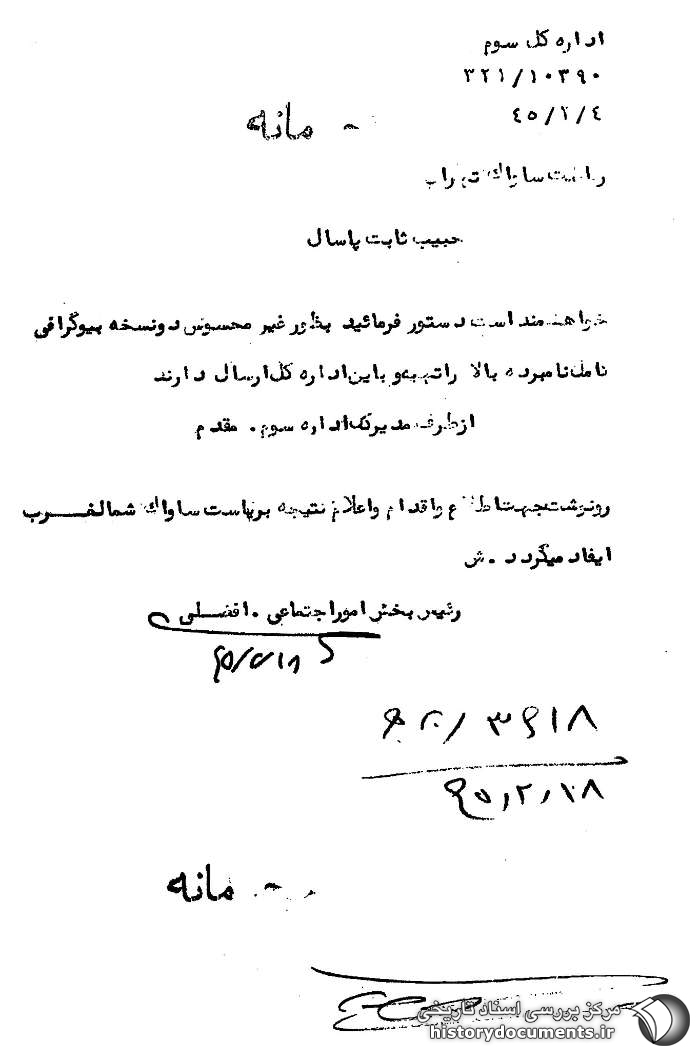 اداره کل سوم
۳۲۱/۱۰۳۹۰
۴۵/۲/۴
مانه
ریاست ساواک تهران
حبیب ثابت پاسال
خواهشمند است دستور فرمائید بطور غیر محسوس دو نسخه بیوگرافی
کامل نامبرده بالا را تهیه و باین اداره کل ارسال دارند
از طرف مدیرکل اداره سوم. مقدم
رونوشت جهت اطلاع و اقدام و اعلام نتیجه بریاست ساواک شمالغرب
ایفاد میگردد. ش
رئیس بخش امور اجتماعی. افضلی
۳۶۱۸
۴۵/۲/۱۸
مانه
مرکز بررسی اسناد تاریخی
historydocuments.ir